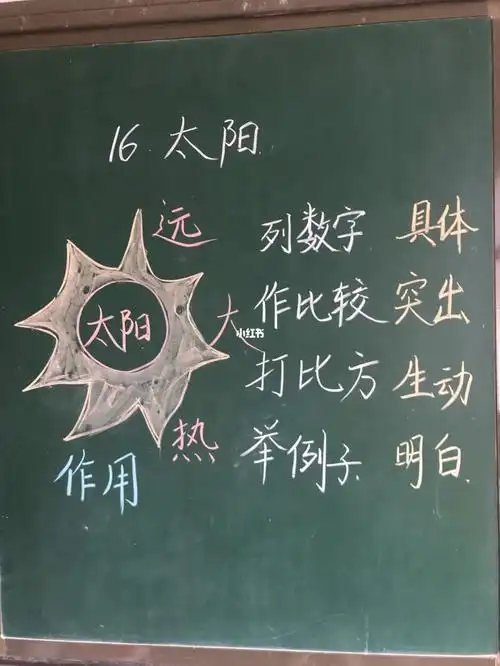 16 太阳
远
列数字 具体
太阳
大
小红书
作比较 突出
打比方 生动
热
举例子 明白
作用